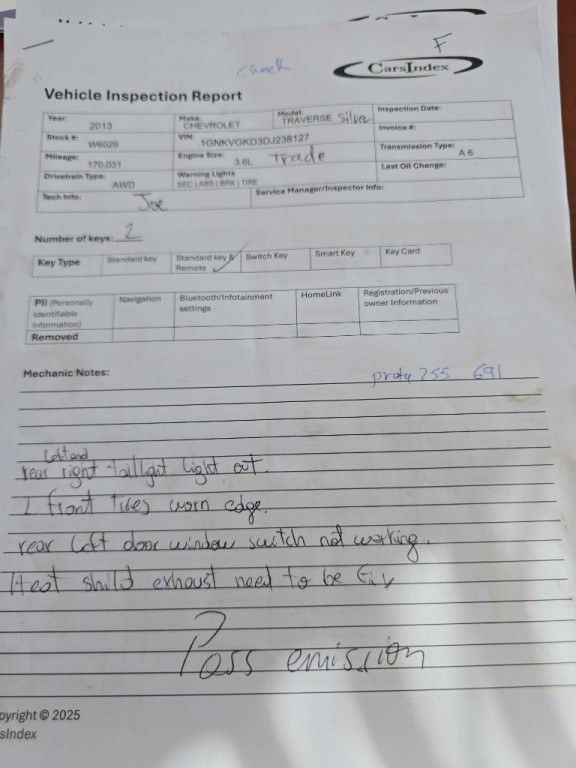 F
Check
CarsIndex
Vehicle Inspection Report
Year: 2013 Make: CHEVROLET Model TRAVERSE Silver Inspection Date:
Invoice #:
Stock #: W6029 VIN: 1GNKVGKD3DJ238127 Transmission Type: A 6
Mileage: 170,031 Engine Size: 3.6L Trade Last Oil Change:
Drivetrain Type: AWD Warning Lights SEC | ABS | BRK | TIRE
Tech Info: Joe Service Manager/Inspector Info:
Number of keys: 2
Key Type Standard key Standard key & Remote ✓ Switch Key Smart Key Key Card
PII (Personally Identifiable Information) Removed Navigation Bluetooth/Infotainment settings HomeLink Registration/Previous owner Information
Mechanic Notes:
255 691
Left and
rear right taillight light out.
2 front tires worn edge.
rear left door window switch not working.
Heat shild exhaust need to be
Pass emission
pyright © 2025
sIndex